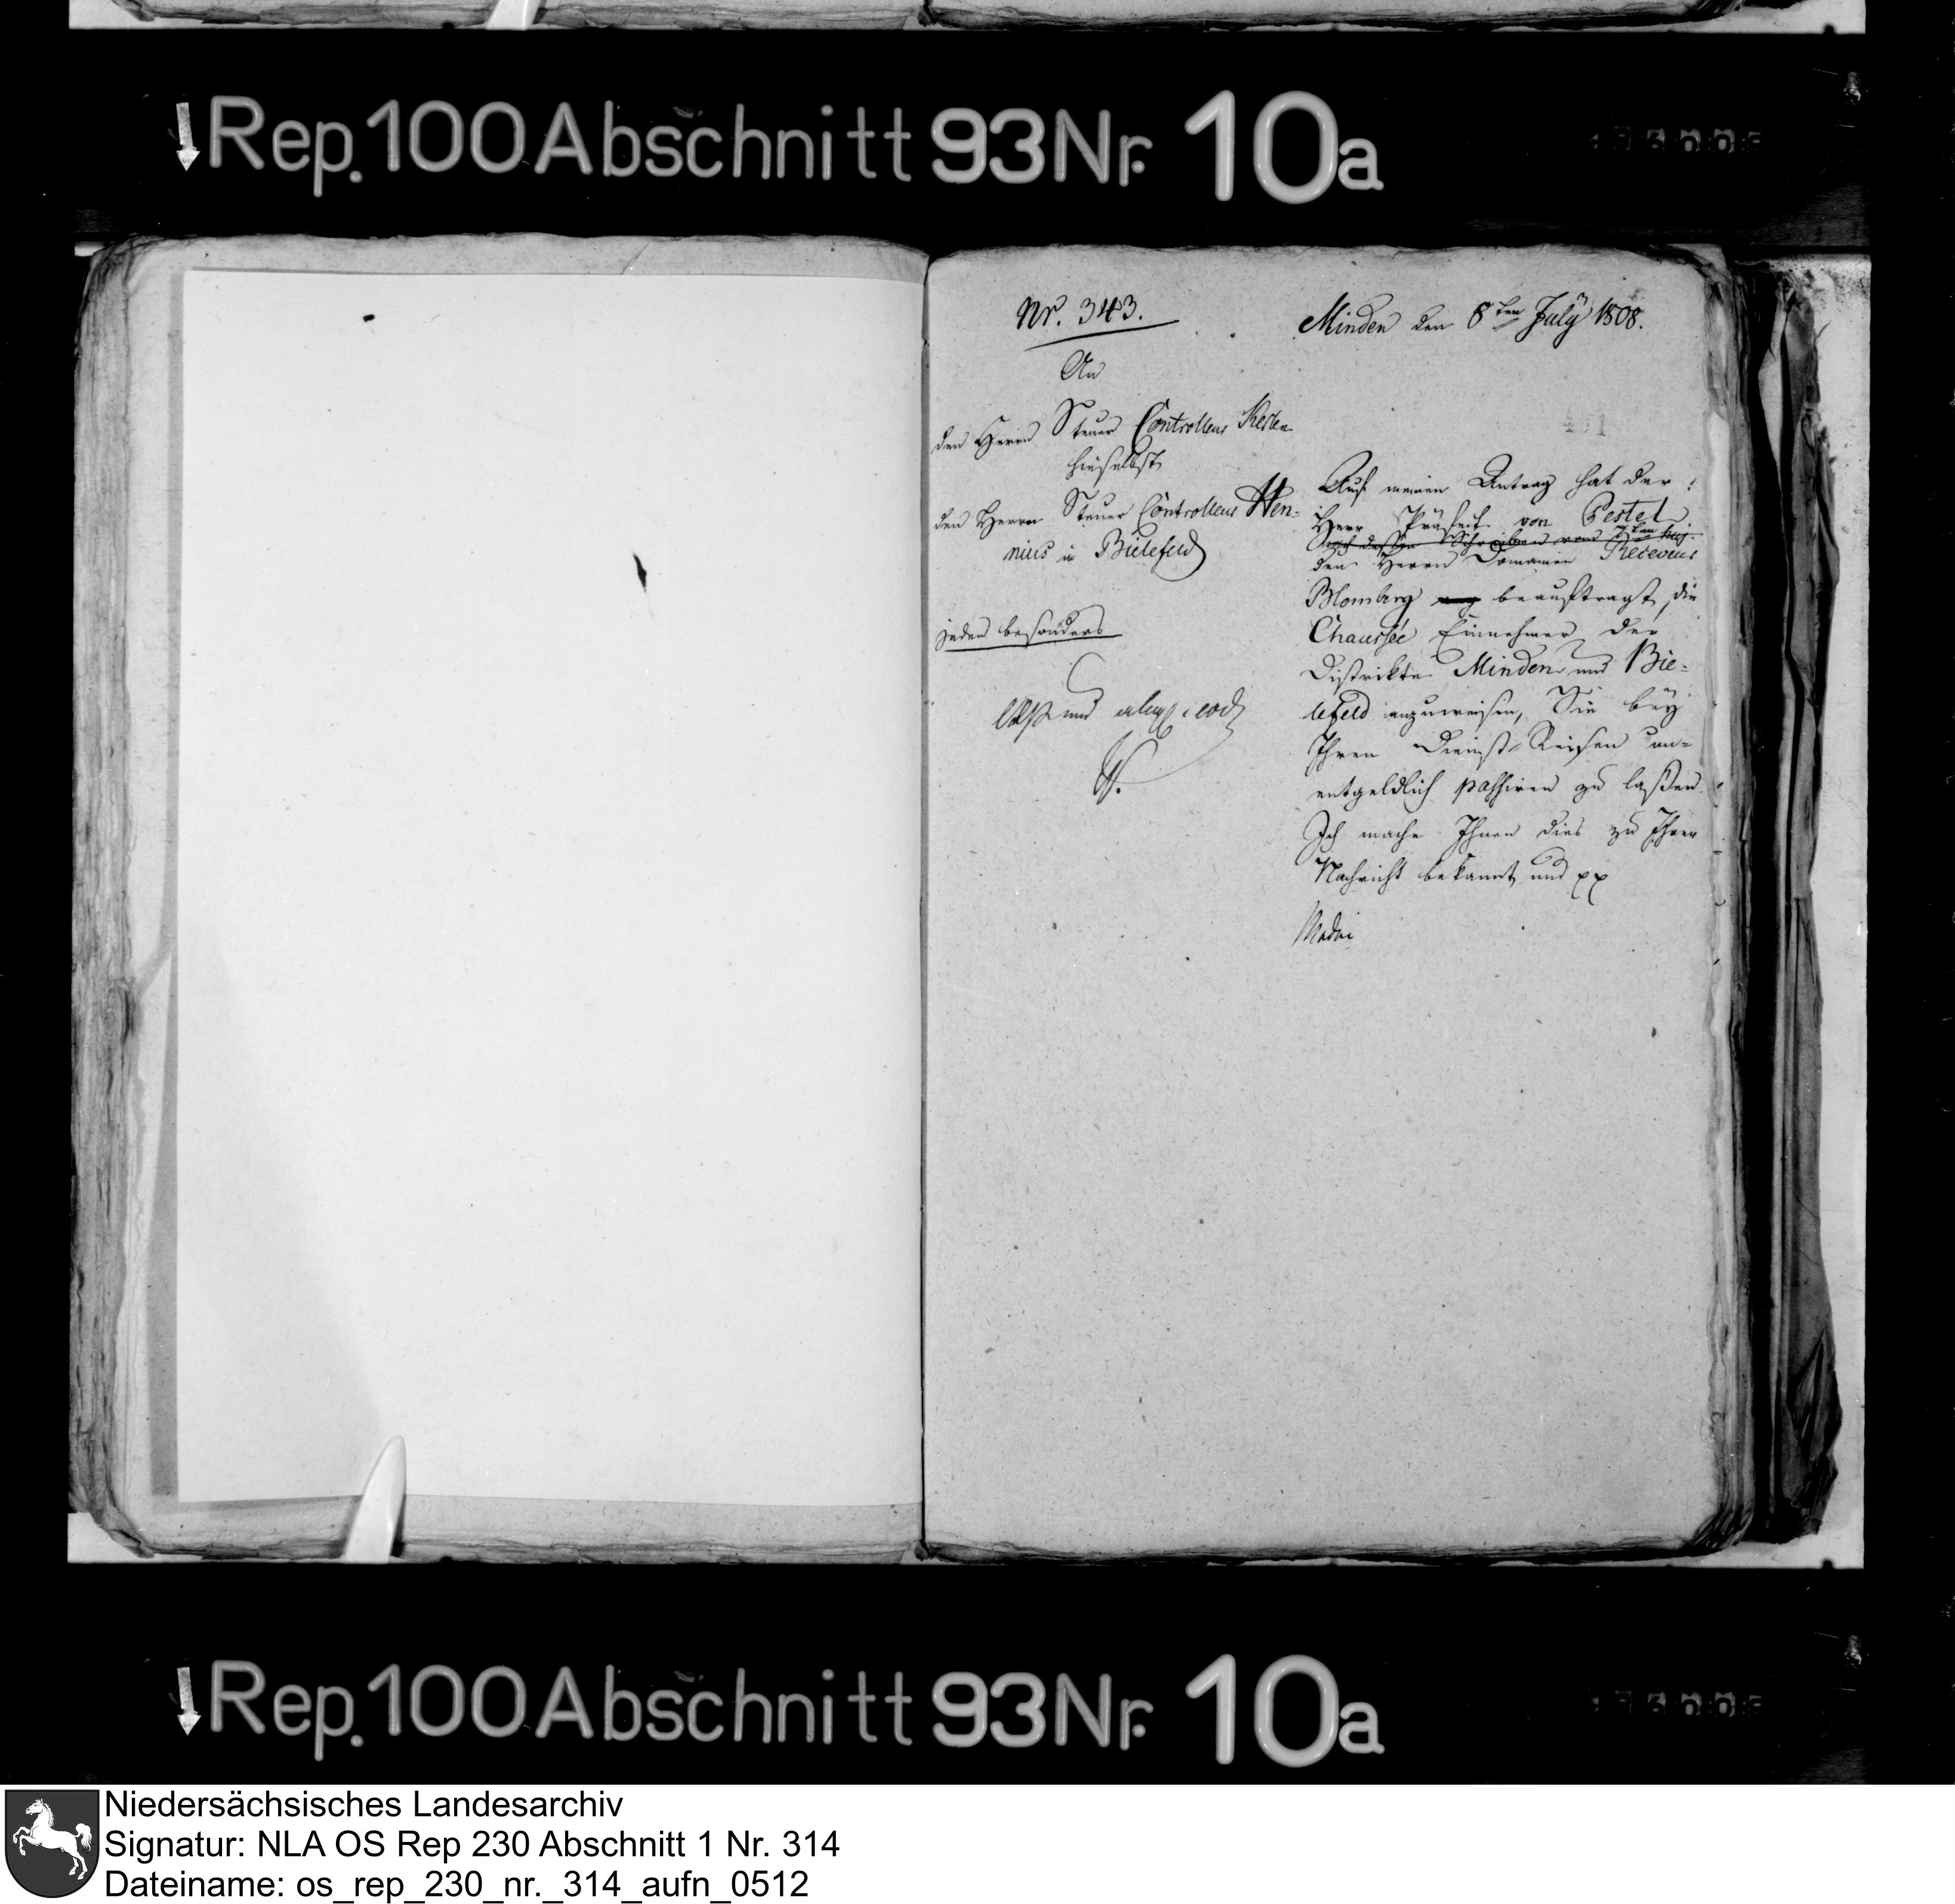 Rep. 100 Abschnitt 93 Nr. 10a
Nr. 343.
Minden den 8ten July 1808.
An
den Herrn Steuer Controlleur Kesten
hieselbst
den Herrn Steuer Controlleur Wen-
nius in Bielefeld
jeden besonders
491
Auf meinen Antrag hat der
Herr Präfect von Pestel
nach dessen Schreiben vom 7ten huj.
den Herrn Domainen Receveur
Blomberg beauftragt, die
Chaussée Einnehmer der
Distrikte Minden und Bie-
lefeld anzuweisen, Sie bey
Ihren Dienst-Reisen un-
entgeldlich passiren zu laßen.
Ich mache Ihnen dies zu Ihrer
Nachricht bekannt und pp
Rep. 100 Abschnitt 93 Nr. 10a
Niedersächsisches Landesarchiv
Signatur: NLA OS Rep 230 Abschnitt 1 Nr. 314
Dateiname: os_rep_230_nr._314_aufn_0512